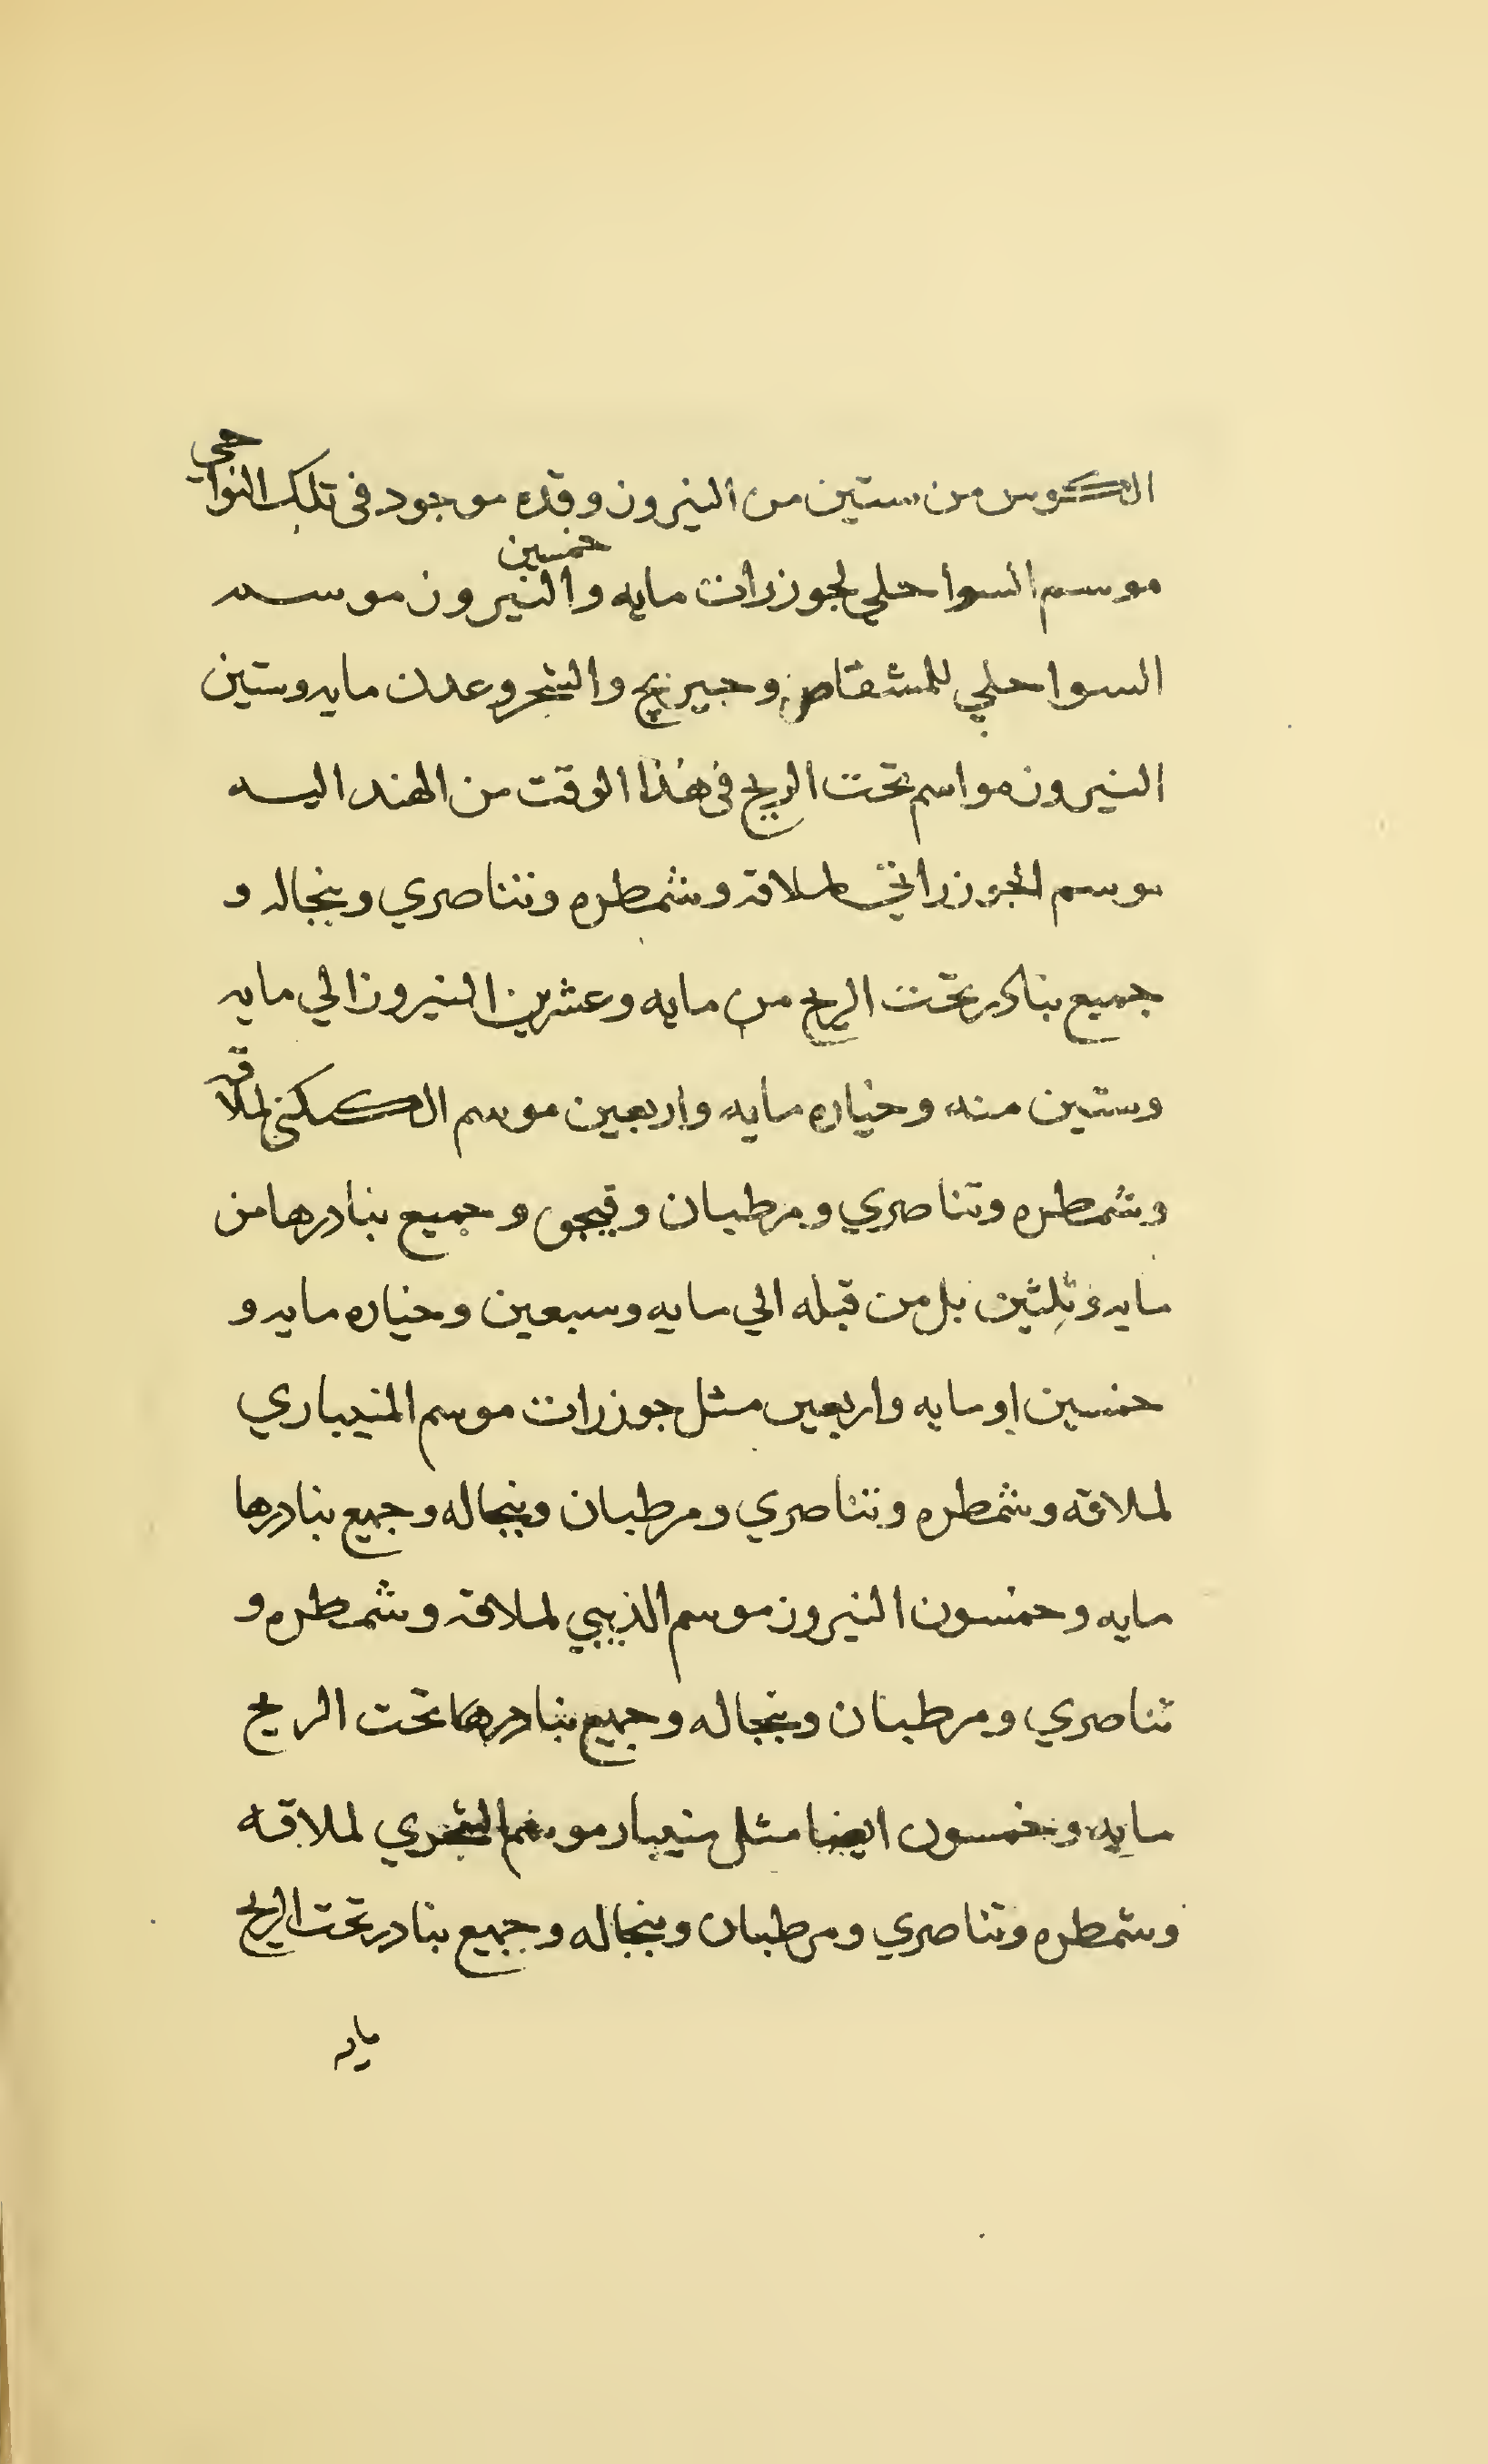 الكوس من ستين من النيروز وقده موجود في تلك النواحي
موسم السواحلي لجوزرات مايه وخمسين النيروز موسم
السواحلي للمشقاص وجيريج والشحر وعدن مايه وستين
النيروز مواسم تحت الريح في هذا الوقت من الهند اليه
موسم الجوزراتي لملاقه وشمطره وتناصري وبنجاله و
جميع بنادر تحت الريح من مايه وعشرين النيروز الي مايه
وستين منه وخياره مايه واربعين موسم الكنكني لملاقه
وشمطره وتناصري ومرطبان وقيجو وجميع بنادرها من
مايه وثلثين بل من قبله الي مايه وسبعين وخياره مايه و
خمسين او مايه واربعين مثل جوزرات موسم المنيباري
لملاقه وشمطره وتناصري ومرطبان وبنجاله وجميع بنادرها
مايه وخمسون النيروز موسم الذيبي لملاقه وشمطره و
تناصري ومرطبان وبنجاله وجميع بنادرها تحت الريح
مايه وخمسون ايضا مثل منيبار موسم الشحري لملاقه
وشمطره وتناصري ومرطبان وبنجاله وجميع بنادر تحت الريح
مايه